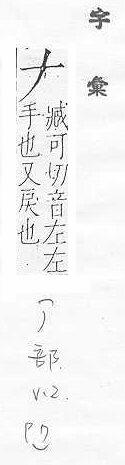 字彙
𠂇
臧可切音左左
手也又戾也
(丿
部
v.2.
P7)